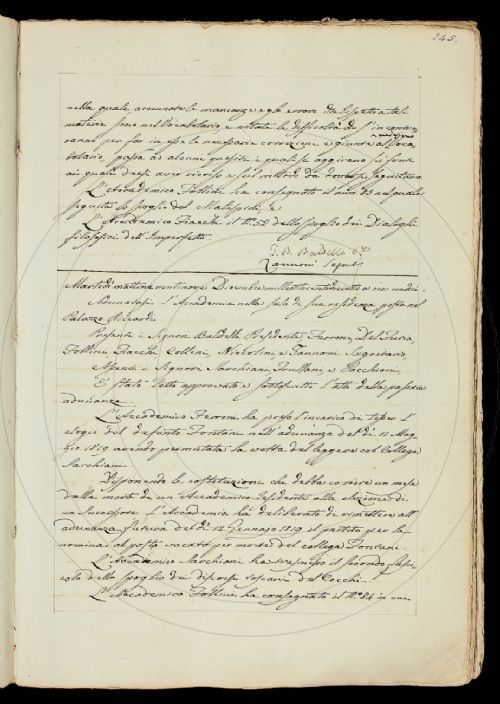 245.
nella quale, accennate le mancanze e gli errori che rispetto a tali
materie sono nel Vocabolario, e notate le difficoltà che s'incontre-
ranno per far in esso le necessarie correzioni e giunte al Voca-
bolario, passa ad alcuni quesiti i quali si aggirano su i fonti
ai quali deesi aver ricorso e sul metodo da seguitare.
L'Accademico Follini ha consegnato il num. nel quale
seguita lo spoglio del Malispini, e
L'Accademico Fiacchi il N.° 52 dello spoglio dei Dialoghi
filosofici dell'Imperfetto.
G. B. Baldelli P.te
Zannoni Segret.
Martedì mattina ventinove Dicembre mille ottocento diciotto a ore undici.
Adunatasi l'Accademia nella sala di sua residenza posta nel
Palazzo Riccardi
Presenti i Signori Baldelli Presidente, Ferroni, Del Furia,
Follini, Fiacchi, Collini, Niccolini, e Zannoni Segretario,
Assenti i Signori Sarchiani, Frullani, e Pacchiani,
È stato letto approvato e sottoscritto l'atto della passata
adunanza.
L'Accademico Ferroni ha preso l'incarico di tesser l'
elogio del defunto Fontani nell'adunanza del dì 11 Mag-
gio 1819 avendo permutata la volta del leggere col Collega
Sarchiani.
Disponendo le costituzioni che debba correre un mese
dalla morte di un Accademico residente alla elezione di
un successore l'Accademia ha deliberato di rimettere all'
adunanza futura del dì 12 Gennajo 1819 il partito per la
nomina al posto vacato per morte del collega Fontani.
L'Accademico Sarchiani ha trasmesso il secondo fasci-
colo dello spoglio dei discorsi toscani del Cocchi.
L'Accademico Follini ha consegnato il N.° 24 in cui